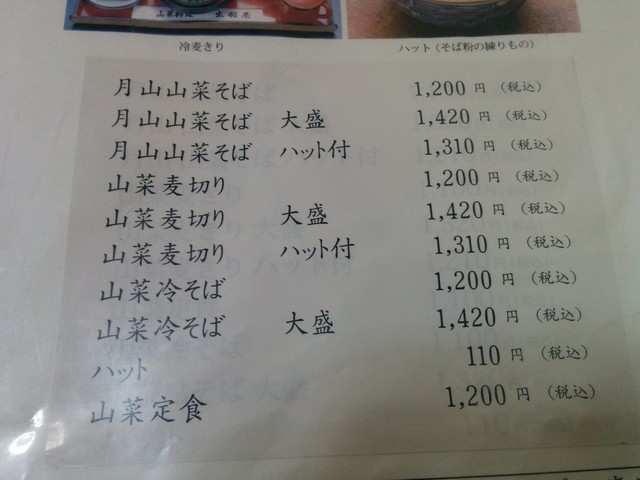 冷麦きり
ハット（そば粉の練りもの）
月山山菜そば 1,200 円 （税込）
月山山菜そば 大盛 1,420 円 （税込）
月山山菜そば ハット付 1,310 円 （税込）
山菜麦切り 1,200 円 （税込）
山菜麦切り 大盛 1,420 円 （税込）
山菜麦切り ハット付 1,310 円 （税込）
山菜冷そば 1,200 円 （税込）
山菜冷そば 大盛 1,420 円 （税込）
ハット 110 円 （税込）
山菜定食 1,200 円 （税込）